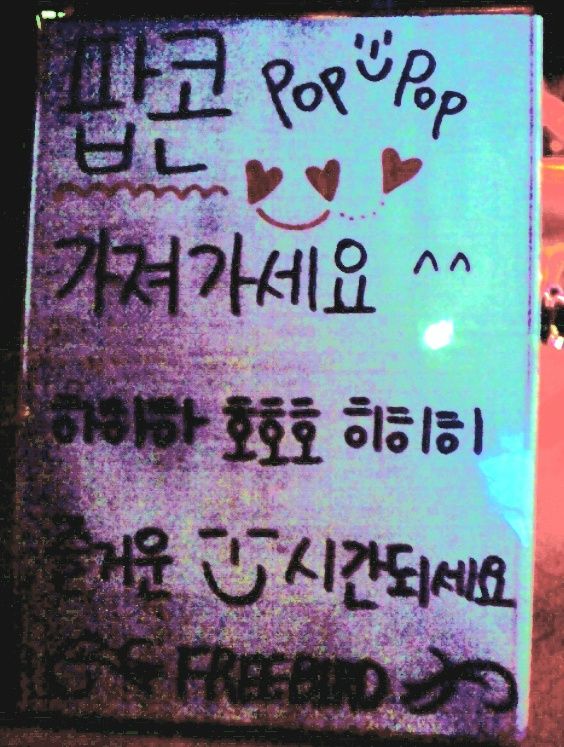 팝콘 POP POP
가져가세요 ^^
하하하 호호호 히히히
즐거운 시간되세요
FREEBIRD